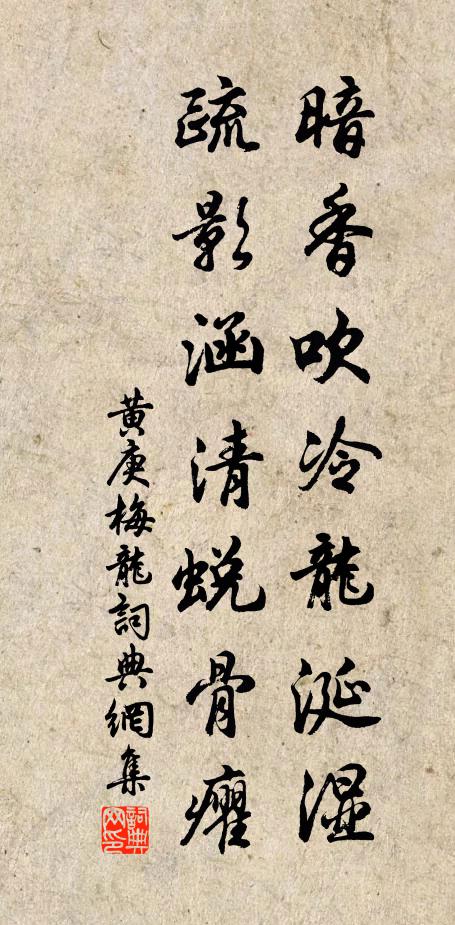 暗香吹冷龍涎湿
疏影涵清蜕骨癯
黄庚梅龍詞典網集
詞典网印